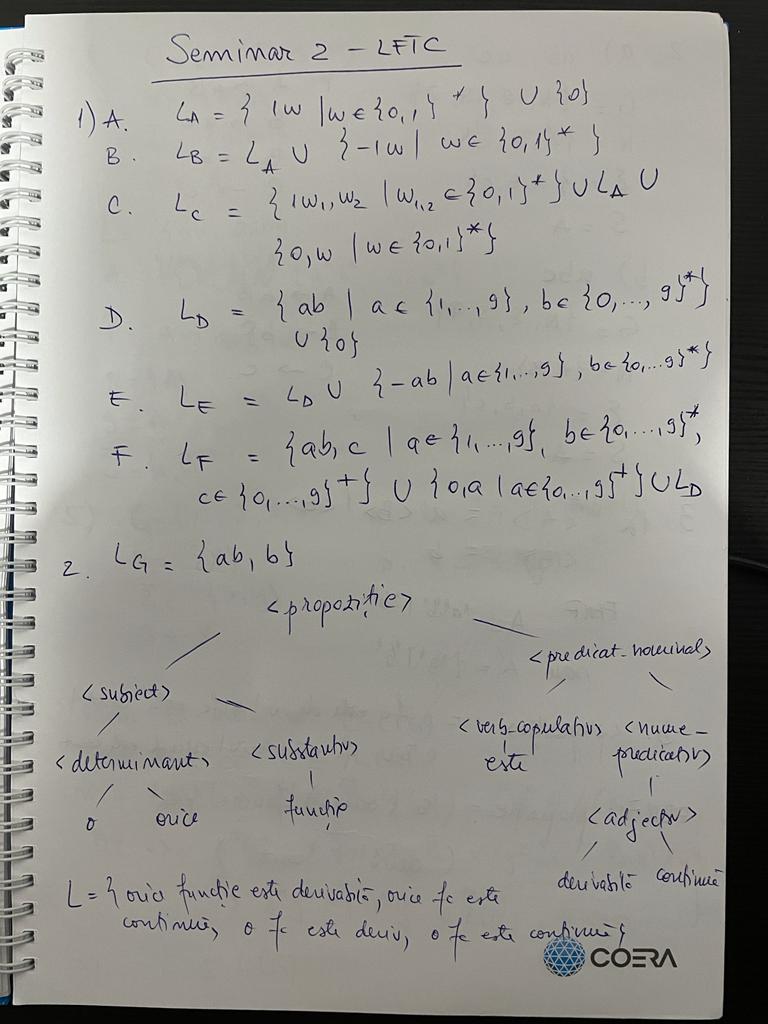 Seminar 2 - LFTC
1) A. L_A = { 1w | w ∈ {0,1}* } ∪ {0}
B. L_B = L_A ∪ {-1w | w ∈ {0,1}* }
C. L_C = {1w₁,w₂ | w₁,₂ ∈ {0,1}⁺} ∪ L_A ∪
{0,w | w ∈ {0,1}*}
D. L_D = { ab | a ∈ {1,...,9}, b ∈ {0,...,9}*}
∪ {0}
E. L_E = L_D ∪ {-ab | a ∈ {1,...,9}, b ∈ {0,...9}*}
F. L_F = {ab,c | a ∈ {1,...,9}, b ∈ {0,...,9}*,
c ∈ {0,...,9}⁺} ∪ {0,a | a ∈ {0,...,9}⁺} ∪ L_D
2. L_G = {ab, b}
<propoziție>
<predicat-nominal>
<subiect>
<verb-copulativ> <nume-
<determinant> <substantiv> este predicativ>
o orice funcție <adjectiv>
derivabilă continuă
L = { orice funcție este derivabilă, orice fc este
continuă, o fc este deriv, o fc este continuă}
COERA